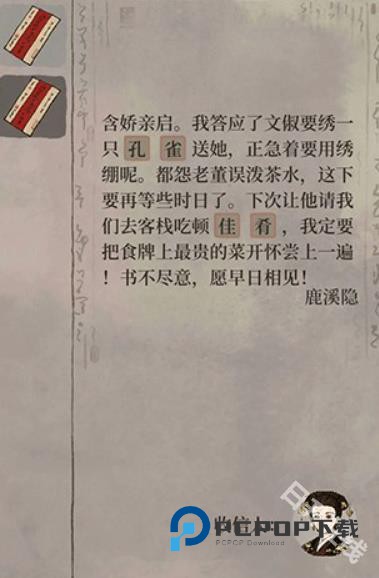 含娇亲启。我答应了文俶要绣一
只孔雀送她，正急着要用绣
绷呢。都怨老董误泼茶水，这下
要再等些时日了。下次让他请我
们去客栈吃顿佳肴，我定要
把食牌上最贵的菜开怀尝上一遍
！书不尽意，愿早日相见！
鹿溪隐
PCPOP下载
PCPOP Download